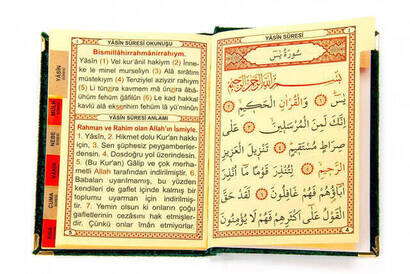 YÂSÎN SÛRESİ OKUNUŞU
Bismillâhirrahmânirrahıym.
Yâsîn (1) Vel kurânil hakiym (2) İnne-
ke le minel murseliyn (3) Alâ sırâtım
müstekıym (4) Tenziylel aziyzir rahıym
(5) Li tünzira kavmem mâ ünzira âbâ-
ühüm fehüm ğâfilûn (6) Le kad hakkal
kavlü alâ ekserihim fehüm lâ yü'minûn
YÂSÎN SÛRESİ ANLAMI
Rahman ve Rahim olan Allah'ın İsmiyle.
1. Yâsîn, 2. Hikmet dolu Kur'an hakkı
için, 3. Sen şüphesiz peygamberler-
densin. 4. Dosdoğru yol üzerindesin.
5. (Bu Kur'an) Gâlip ve çok merha-
metli Allah tarafından indirilmiştir. 6.
Babaları uyarılmamış, bu yüzden
kendileri de gaflet içinde kalmış bir
toplumu uyarman için indirilmiş-
tir. 7. Yemin olsun ki onların çoğu
gafletlerinin cezasını hak etmişler-
dir. Çünkü onlar iman etmiyorlar.
YÂSÎN
MÜLK
NEBE
CUMA
YÂSÎN SÛRESİ
سُورَةُ يٰسٓ
بِسْمِ اللّٰهِ الرَّحْمٰنِ الرَّحِيمِ
يٰسٓ ﴿١﴾ وَالْقُرْاٰنِ الْحَكِيمِ ﴿٢﴾
اِنَّكَ لَمِنَ الْمُرْسَلِينَ ﴿٣﴾ عَلٰى
صِرَاطٍ مُسْتَقِيمٍ ﴿٤﴾ تَنْزِيلَ الْعَزِيزِ
الرَّحِيمِ ﴿٥﴾ لِتُنْذِرَ قَوْمًا مَٓا اُنْذِرَ
اٰبَٓاؤُ۬هُمْ فَهُمْ غَافِلُونَ ﴿٦﴾ لَقَدْ حَقَّ
الْقَوْلُ عَلٰٓى اَكْثَرِهِمْ فَهُمْ لَا يُؤْمِنُونَ